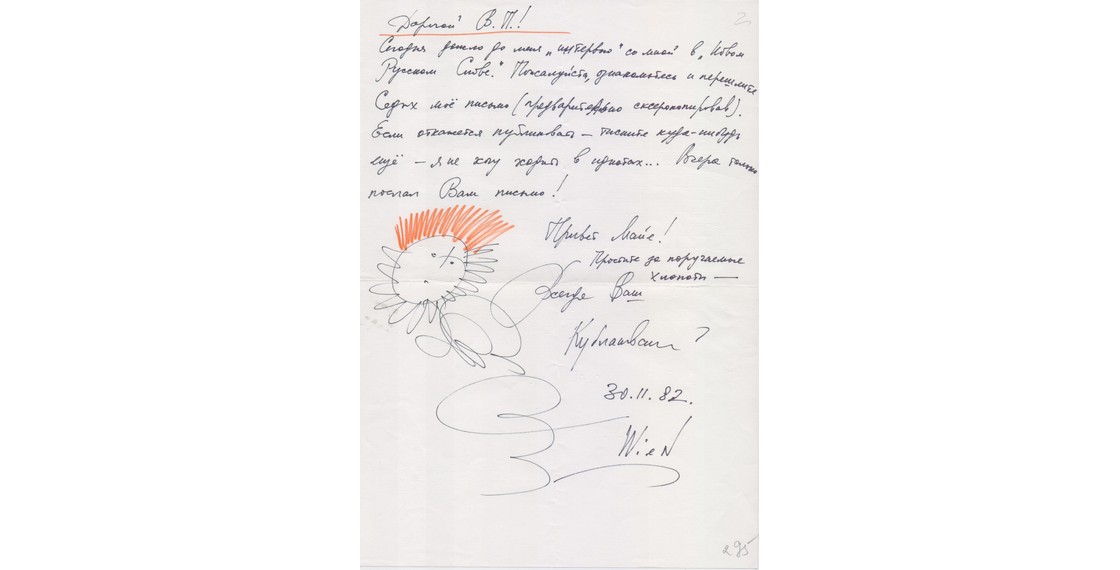 2
Дорогой В.П.!
Сегодня дошло до меня „интервью" со мной в „Новом
Русском Слове." Пожалуйста, ознакомьтесь и перешлите
Седых моё письмо (предварительно ксерокопировав).
Если откажется публиковать — тисните куда-нибудь
ещё — я не хочу ходить в идиотах... Вчера только
послал Вам письмо!
Привет Майе!
Простите за поручаемые
хлопоты —
Всегда Ваш
Кублановский
30.11.82.
Wien
295